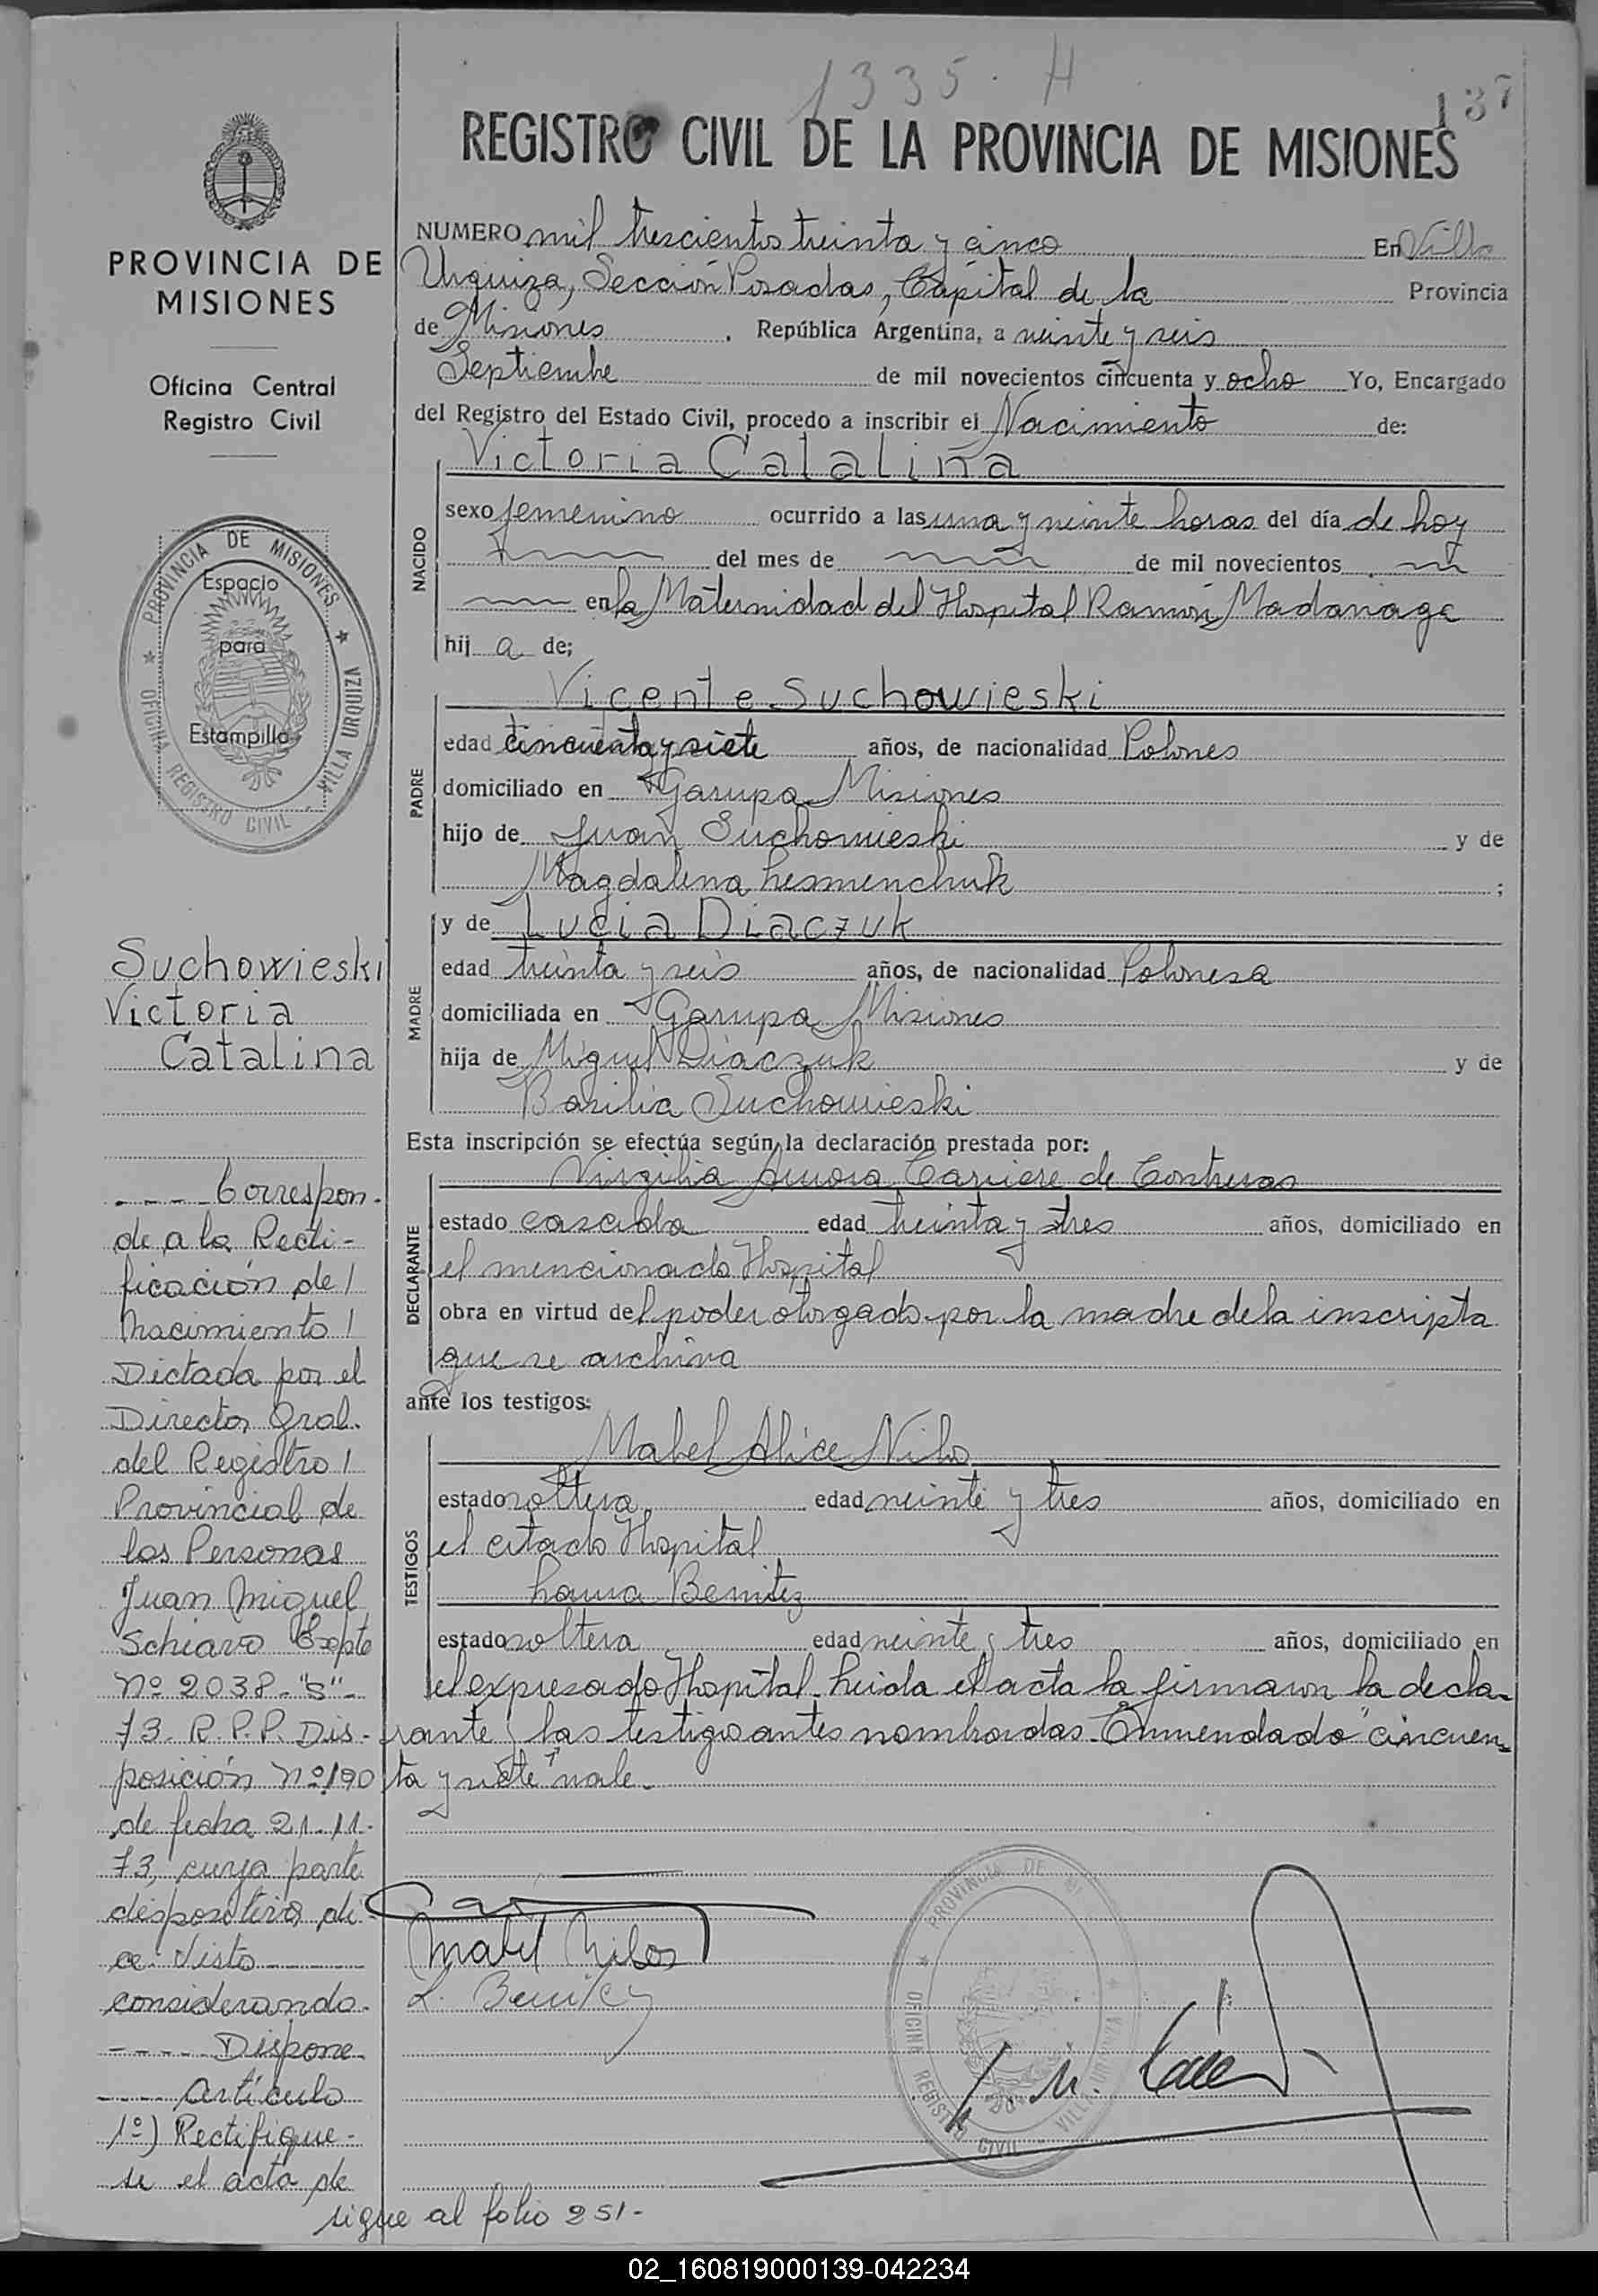 1335. H
137
REGISTRO CIVIL DE LA PROVINCIA DE MISIONES
PROVINCIA DE
MISIONES
Oficina Central
Registro Civil
PROVINCIA DE MISIONES
OFICINA REGISTRO CIVIL VILLA URQUIZA
Espacio
para
Estampilla
Suchowieski
Victoria
Catalina
---- Correspon-
de a la Recti-
ficación de /
Nacimiento /
Dictada por el
Director Gral.
del Registro /
Provincial de
las Personas
Juan Miguel
Schiavo Expte
Nº 2038-"S"-
73. R.P.P. Dis-
posición Nº 190
de fecha 21-11-
73, cuya parte
dispositiva di-
ce: Visto ----
considerando-
----- Dispone
---- Artículo
1º) Rectifique-
se el acta de
sigue al folio 251-
NUMERO mil trescientos treinta y cinco En Villa
Urquiza, Sección Posadas, Capital de la Provincia
de Misiones, República Argentina, a veinte y seis
Septiembre de mil novecientos cincuenta y ocho Yo, Encargado
del Registro del Estado Civil, procedo a inscribir el Nacimiento de:
NACIDO
Victoria Catalina
sexo femenino ocurrido a las una y veinte horas del día de hoy
del mes de de mil novecientos
en la Maternidad del Hospital Ramón Madariaga
hij a de;
PADRE
Vicente Suchowieski
edad cincuenta y siete años, de nacionalidad Polones
domiciliado en Garupa Misiones
hijo de Juan Suchowieski y de
Magdalena Lesmenchuk ;
MADRE
y de Lucia Diaczuk
edad treinta y seis años, de nacionalidad Polonesa
domiciliada en Garupa Misiones
hija de Miguel Diaczuk y de
Basilia Suchowieski
Esta inscripción se efectúa según la declaración prestada por:
DECLARANTE
Virgilia Aurora Carriere de Contreras
estado casada edad treinta y tres años, domiciliado en
el mencionado Hospital
obra en virtud del poder otorgado por la madre de la inscripta
que se archiva
ante los testigos:
TESTIGOS
Mabel Alice Nilos
estado soltera edad veinte y tres años, domiciliado en
el citado Hospital
Laura Benitez
estado soltera edad veinte y tres años, domiciliado en
el expresado Hospital. Leida el acta la firmaron la decla-
rante y las testigos antes nombradas. Enmendado "cincuen-
ta y siete" vale.
Mabel Nilos
L. Benitez
PROVINCIA DE MI
OFICINA REGISTRO CIVIL VILLA URQUIZA
02_160819000139-042234